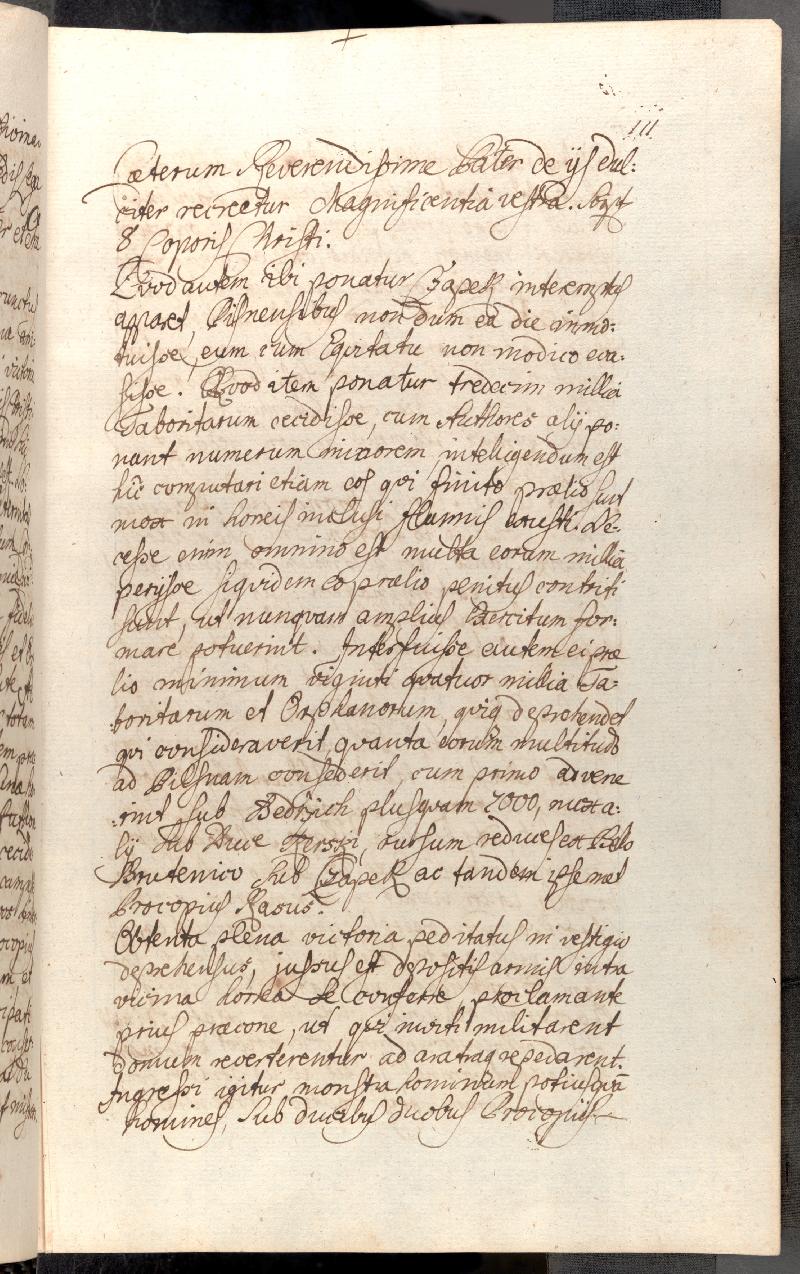 111
Cæterum Reverendissime Pater de ijs dul:
citer recreetur Magnificentia vestra.
8 Coporis Christi.
Quod autem ibi ponatur Czapek interemptus
apparet, Pilsnensibus nondum ea die inno:
tuisse, eum cum Equitatu non modico eva:
sisse. Quod item ponatur tredecim millia
Taboritarum cecidisse, cum Authores alij po:
nant numerum minorem, inteligendum est
hic computari etiam eos qui finito prælio sunt
mox in horreis inclusi flamis exusti. Ne:
cesse enim omnino est multa eorum millia
perijsse siquidem eo prælio penitus contriti
sunt, ut nunquam amplius Exercitum for:
mare potuerint. Interfuisse autem ei præ
lio minimum viginti quatuor millia Ta:
boritarum et Orphanorum, quiq deprehendet
qui consideraverit, quanta eorum multitudo
ad Pilsnam consederit, cum primo advene
:rint sub Bedrzich plusquam 7000, mox a:
lij sub Duce Kerski, rursum reduces ex Belo
Brutenico sub Czapek ac tandem ipsemet
Procopius Rasus.
Obtenta plena victoria peditatus in vestigio
deprehensus, jussus est depositis armis intra
vicina horrea se conferre, proclamante
prius præcone, ut qui inviti militarent
domum reverterentur ad aratraq repedarent.
Ingressi igitur monstra hominum potius quã
homines, sub ducibus duobus Procopiis